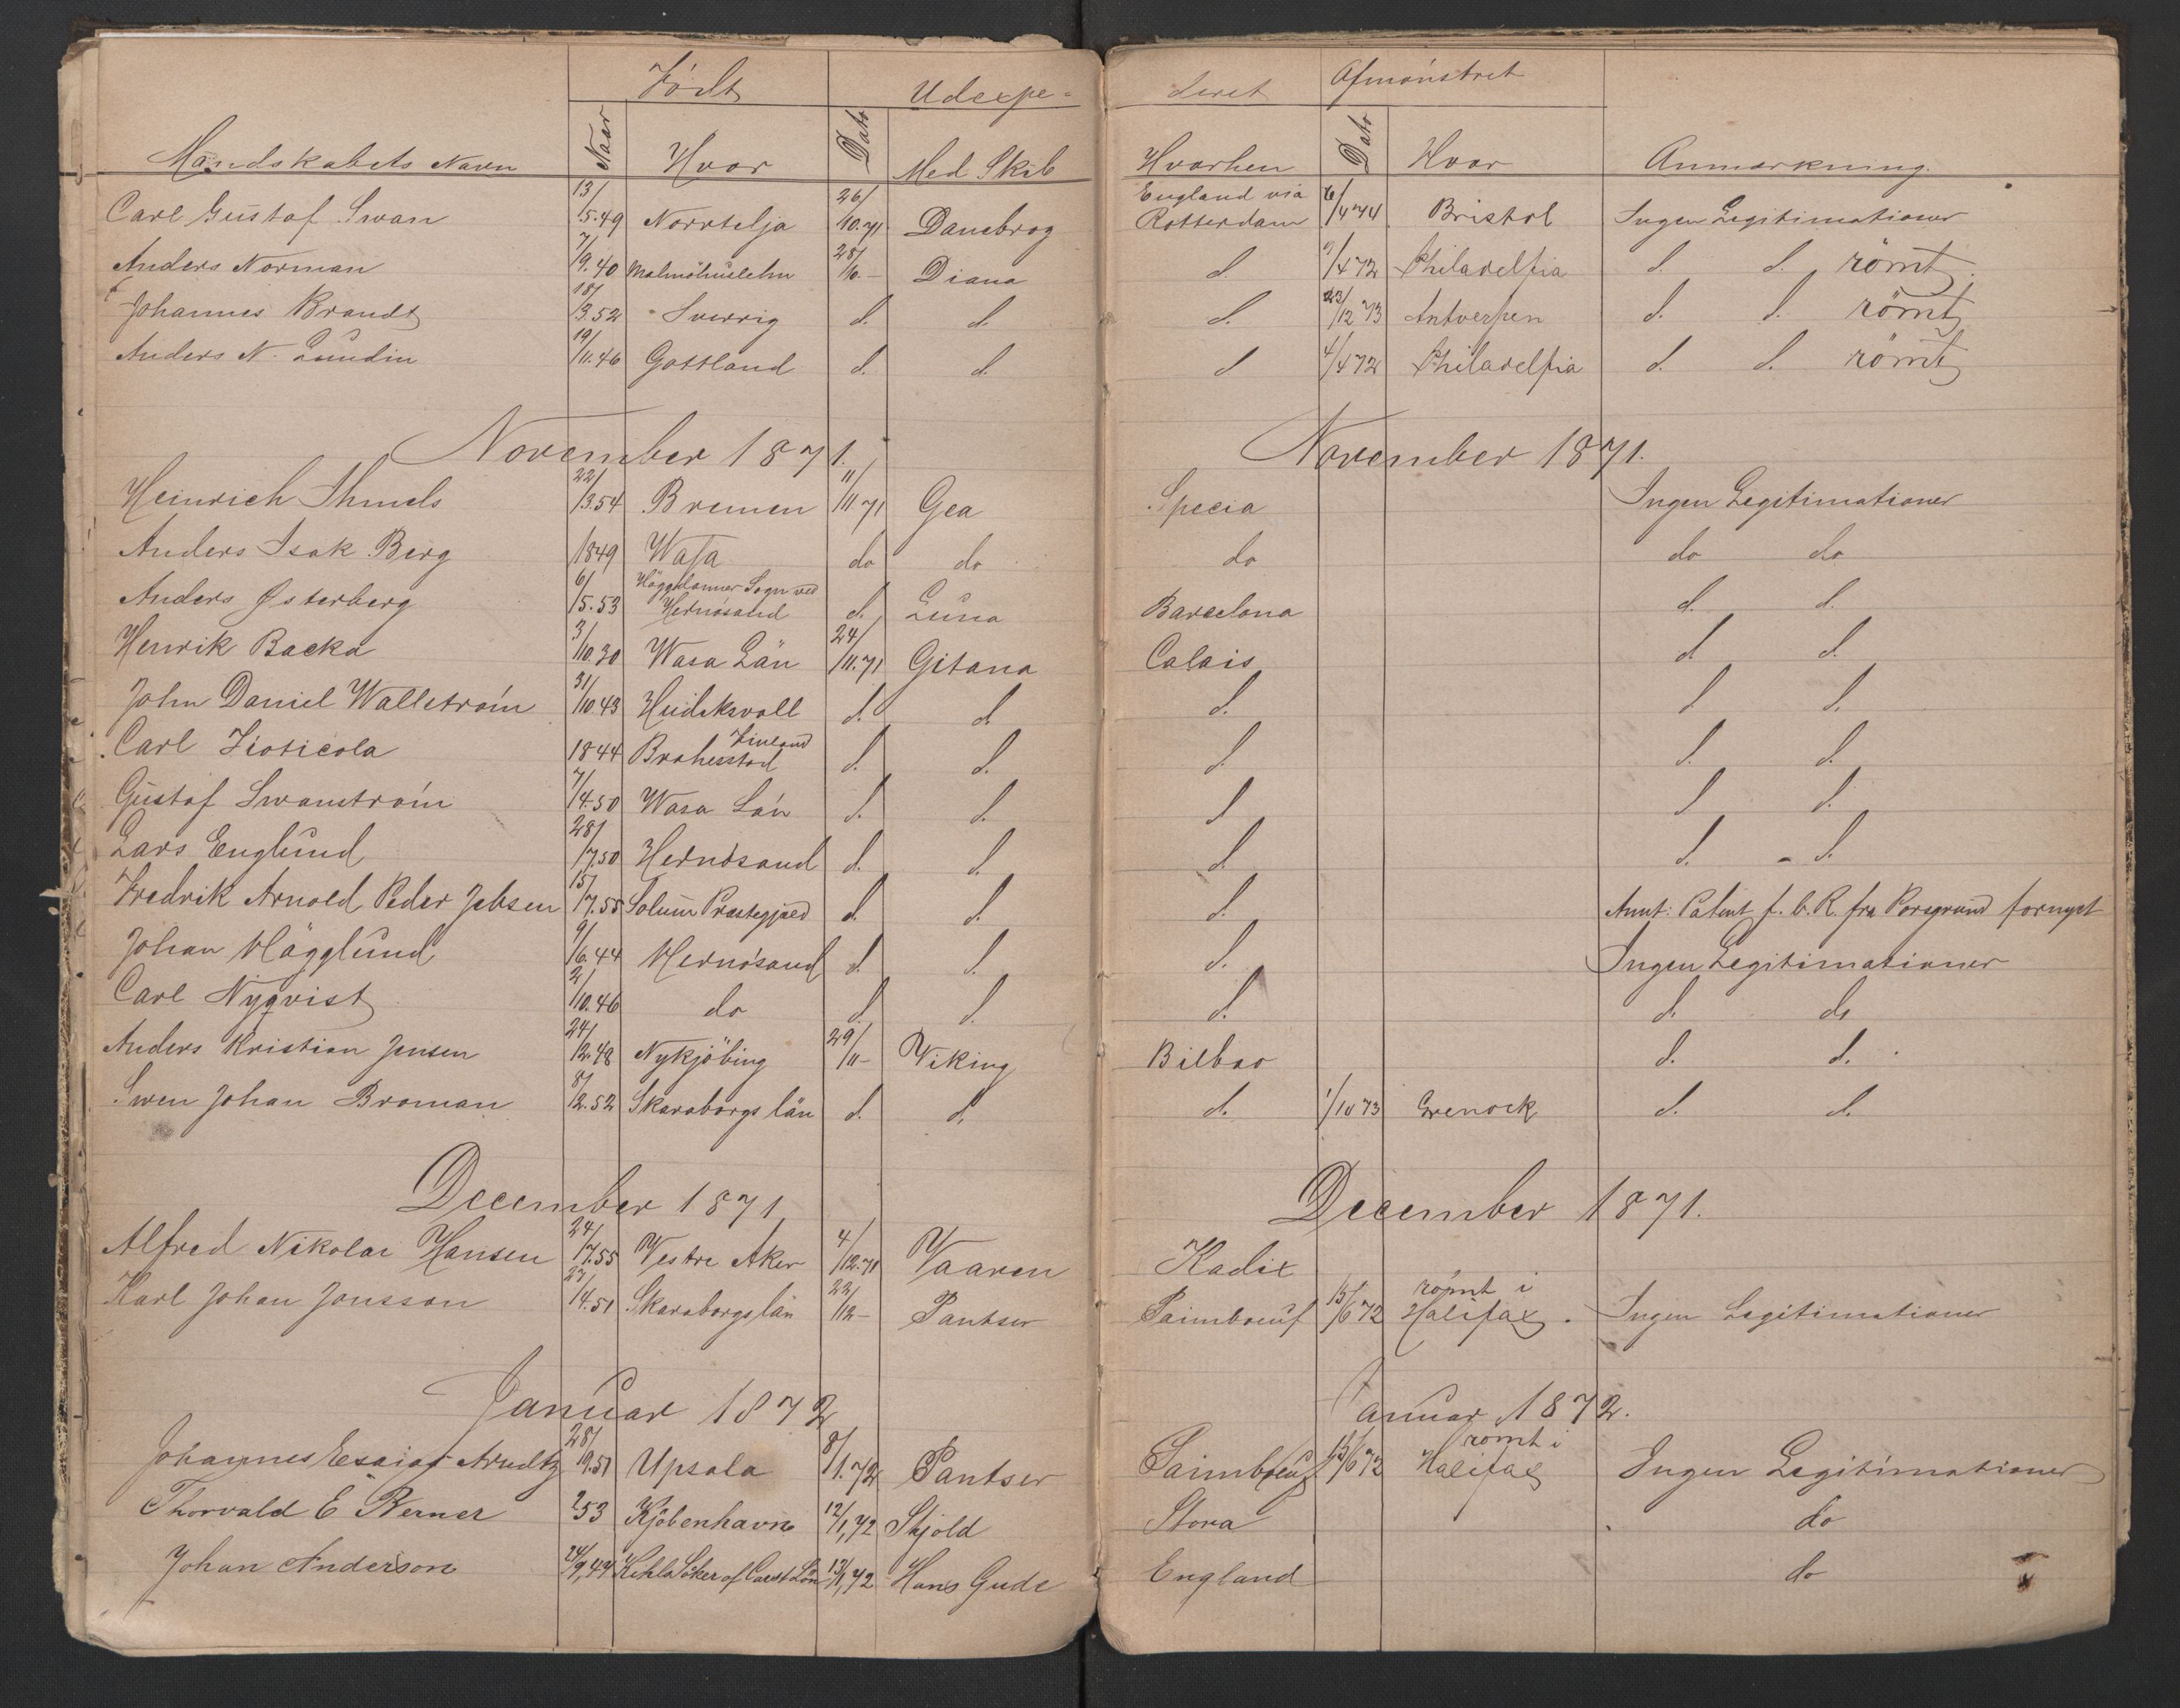 Født Udexpe= deret Afmønstret
Mandskabets Navn Naar Hvor Dato Med Skib Hvorhen Dato Hvor Anmærkning.
Carl Gustaf Swan 13/5.49 Norrtelja 26/10.71 Danebrog England via Rotterdam 6/4 74 Bristol Ingen Legitimationer
Anders Norman 7/9.40 Malmöhuslehn 28/10.– Diana d. 9/4 72 Philadelfia d. d. römt
Johannes Brandt 18/3.52 Sverrig d. d. d. 23/12 73 Antverpen d. d. römt
Anders N. Lundin 19/11.46 Gottland d. d. d 4/4 72 Philadelfia d. d. römt
November 1871. November 1871.
Heinrich Ihmels 22/3.54 Bremen 11/11.71 Gea Specia Ingen Legitimationer
Anders Isak Berg 1849 Wasa do do do do do
Anders Østerberg 6/5.53 Häggdanner Sogn ved Hernösand d. Luna Barcelona d. d.
Henrik Backa 3/10.30 Wasa Län 24/11.71 Gitana Calais d. d.
John Daniel Wallström 31/10.43 Hudiksvall d. d. d. d. d.
Carl Fioticola 1844 Brahestad Finland d. d. d. d. d.
Gustaf Swanström 7/4.50 Wasa Län d. d. d d d.
Lars Englund 28/7.50 Hernösand d. d. d. d. d.
Fredrik Arnold Peder Jebsen 15/7.55 Solum Præstegjæld d. d. d. Anmt: Patent f. b. R. fra Porsgrund fornyet
Johan Hägglund 9/6.44 Hernösand d. d. d. Ingen Legitimationer
Carl Nyqvist 2/10.46 do d. d. d. d. do
Anders Kristian Jensen 24/12.48 Nykjöbing 29/11– Viking Bilbao d. d.
Swen Johan Broman 8/2.52 Skaraborgs län d. d. d. 1/10 73 Grenock d. d.
December 1871 December 1871.
Alfred Nikolai Hansen 24/7.55 Vestre Aker 4/12.71 Vaaren Kadix
Karl Johan Jonsson 27/4.51 Skaraborgs län 22/12– Pantser Paimboeuf 15/6 72 römt i Halifax. Ingen Legitimationer
Januar 1872 Januar 1872.
Johannes Esaias Arndtz 28/9.51 Upsala 8/1.72 Pantser Paimboeuf 15/6 72 römt i Halifax Ingen Legitimationer
Thorvald E Berner 2 53 Kjöbenhavn 12/1,72 Skjold Stora do
Johan Anderson 24/9,44 13/1,72 Hans Gude England do